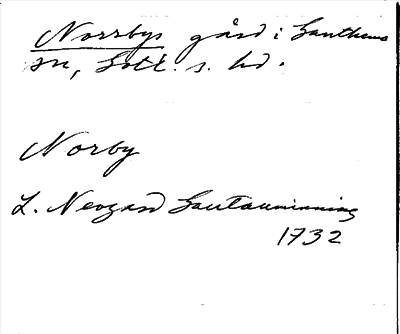 Norrbys gård i Ganthems
sn, Gotl. s. hd.
Norby
L. Neogard Gautauminning
1732